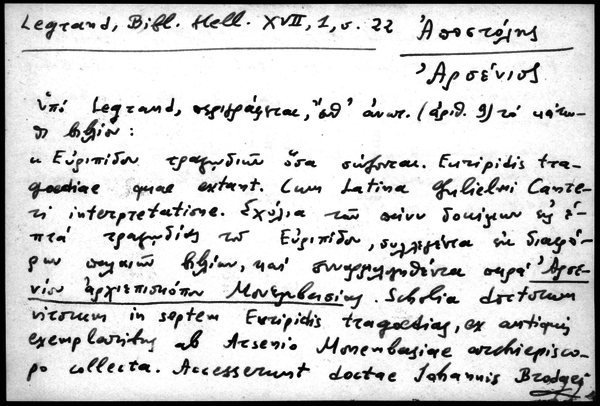 Legrand, Bibl. Hell. XVII, 1, σ. 22
Ἀποστόλης
Ἀρσένιος
ὑπό Legrand, περιγράφεται, ἔνθ' ἀνωτ. (ἀριθ. 9) τό κάτω-
θι βιβλίον:
« Εὐριπίδου τραγωδιῶν ὅσα σώζονται. Euripidis tra-
goediae quae extant. Cum Latina Gulielmi Cante-
ri interpretatione. Σχόλια τῶν πάνυ δοκίμων εἰς ἑ-
πτά τραγωδίας τοῦ Εὐριπίδου, συλλεγέντα ἐκ διαφό-
ρων παλαιῶν βιβλίων, καί συναρμολογηθέντα παρά Ἀρσε-
νίου ἀρχιεπισκόπου Μονεμβασίας. Scholia doctorum
virorum in septem Euripidis tragoedias, ex antiquis
exemplaribus ab Arsenio Monembasiae archiepisco-
po collecta. Accesserunt doctae Iohannis Brodaei